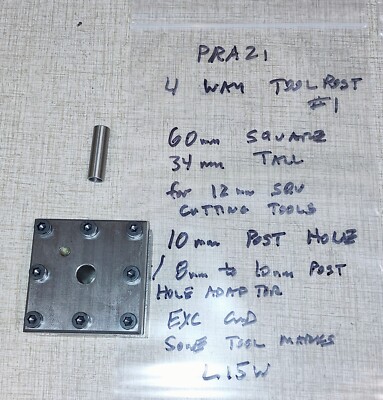 PRAZI
4 WAY TOOL POST
#1
60mm SQUARE
34mm TALL
for 12mm SQU
CUTTING TOOLS
10mm POST HOLE
/ 8mm to 10mm POST
HOLE ADAPTOR
EXC CND
SOME TOOL MARKS
L15W